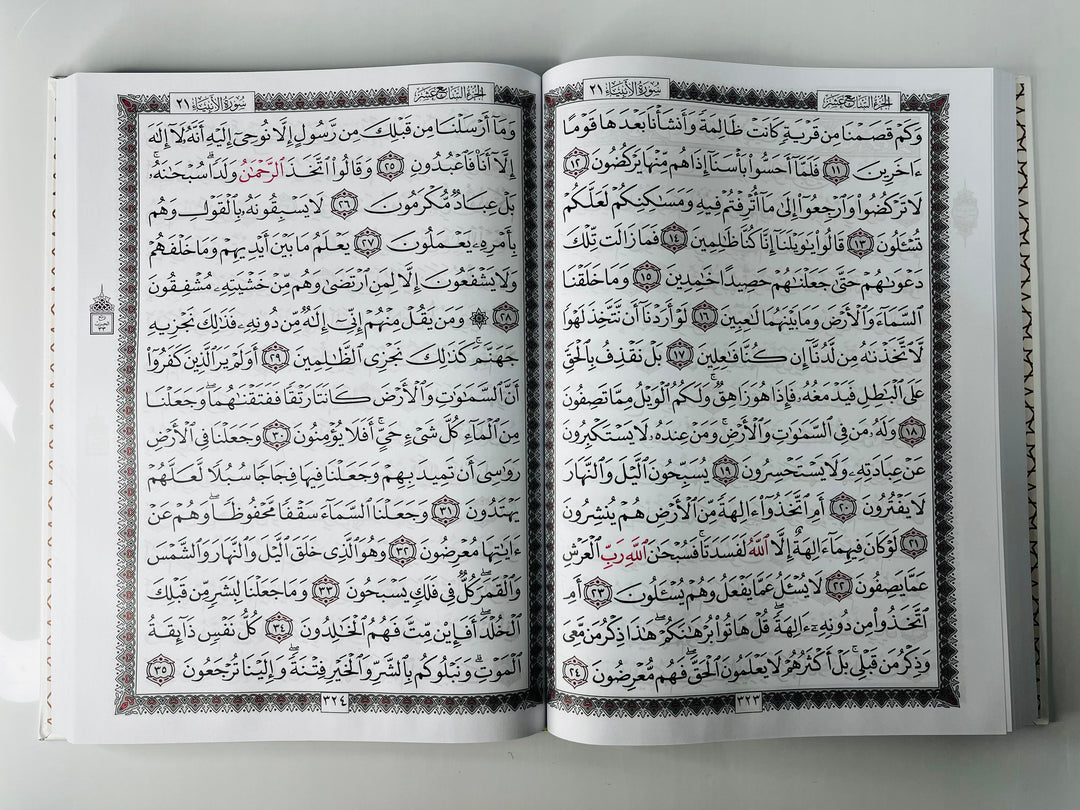 الجزء السابع عشر
سورة الأنبياء ٢١
وَكَمْ قَصَمْنَا مِن قَرْيَةٍ كَانَتْ ظَالِمَةً وَأَنشَأْنَا بَعْدَهَا قَوْمًا
ءَاخَرِينَ ١١ فَلَمَّآ أَحَسُّوا۟ بَأْسَنَآ إِذَا هُم مِّنْهَا يَرْكُضُونَ ١٢
لَا تَرْكُضُوا۟ وَٱرْجِعُوٓا۟ إِلَىٰ مَآ أُتْرِفْتُمْ فِيهِ وَمَسَـٰكِنِكُمْ لَعَلَّكُمْ
تُسْـَٔلُونَ ١٣ قَالُوا۟ يَـٰوَيْلَنَآ إِنَّا كُنَّا ظَـٰلِمِينَ ١٤ فَمَا زَالَت تِّلْكَ
دَعْوَىٰهُمْ حَتَّىٰ جَعَلْنَـٰهُمْ حَصِيدًا خَـٰمِدِينَ ١٥ وَمَا خَلَقْنَا
ٱلسَّمَآءَ وَٱلْأَرْضَ وَمَا بَيْنَهُمَا لَـٰعِبِينَ ١٦ لَوْ أَرَدْنَآ أَن نَّتَّخِذَ لَهْوًا
لَّٱتَّخَذْنَـٰهُ مِن لَّدُنَّآ إِن كُنَّا فَـٰعِلِينَ ١٧ بَلْ نَقْذِفُ بِٱلْحَقِّ
عَلَى ٱلْبَـٰطِلِ فَيَدْمَغُهُۥ فَإِذَا هُوَ زَاهِقٌ ۚ وَلَكُمُ ٱلْوَيْلُ مِمَّا تَصِفُونَ
١٨ وَلَهُۥ مَن فِى ٱلسَّمَـٰوَٰتِ وَٱلْأَرْضِ ۚ وَمَنْ عِندَهُۥ لَا يَسْتَكْبِرُونَ
عَنْ عِبَادَتِهِۦ وَلَا يَسْتَحْسِرُونَ ١٩ يُسَبِّحُونَ ٱلَّيْلَ وَٱلنَّهَارَ
لَا يَفْتُرُونَ ٢٠ أَمِ ٱتَّخَذُوٓا۟ ءَالِهَةً مِّنَ ٱلْأَرْضِ هُمْ يُنشِرُونَ
٢١ لَوْ كَانَ فِيهِمَآ ءَالِهَةٌ إِلَّا ٱللَّهُ لَفَسَدَتَا ۚ فَسُبْحَـٰنَ ٱللَّهِ رَبِّ ٱلْعَرْشِ
عَمَّا يَصِفُونَ ٢٢ لَا يُسْـَٔلُ عَمَّا يَفْعَلُ وَهُمْ يُسْـَٔلُونَ ٢٣ أَمِ
ٱتَّخَذُوا۟ مِن دُونِهِۦٓ ءَالِهَةً ۖ قُلْ هَاتُوا۟ بُرْهَـٰنَكُمْ ۖ هَـٰذَا ذِكْرُ مَن مَّعِىَ
وَذِكْرُ مَن قَبْلِى ۗ بَلْ أَكْثَرُهُمْ لَا يَعْلَمُونَ ٱلْحَقَّ ۖ فَهُم مُّعْرِضُونَ ٢٤
٣٢٣
الجزء السابع عشر
سورة الأنبياء ٢١
وَمَآ أَرْسَلْنَا مِن قَبْلِكَ مِن رَّسُولٍ إِلَّا نُوحِىٓ إِلَيْهِ أَنَّهُۥ لَآ إِلَـٰهَ
إِلَّآ أَنَا۠ فَٱعْبُدُونِ ٢٥ وَقَالُوا۟ ٱتَّخَذَ ٱلرَّحْمَـٰنُ وَلَدًا ۗ سُبْحَـٰنَهُۥ ۚ
بَلْ عِبَادٌ مُّكْرَمُونَ ٢٦ لَا يَسْبِقُونَهُۥ بِٱلْقَوْلِ وَهُم
بِأَمْرِهِۦ يَعْمَلُونَ ٢٧ يَعْلَمُ مَا بَيْنَ أَيْدِيهِمْ وَمَا خَلْفَهُمْ
وَلَا يَشْفَعُونَ إِلَّا لِمَنِ ٱرْتَضَىٰ وَهُم مِّنْ خَشْيَتِهِۦ مُشْفِقُونَ
٢٨ ۞ وَمَن يَقُلْ مِنْهُمْ إِنِّىٓ إِلَـٰهٌ مِّن دُونِهِۦ فَذَٰلِكَ نَجْزِيهِ
جَهَنَّمَ ۚ كَذَٰلِكَ نَجْزِى ٱلظَّـٰلِمِينَ ٢٩ أَوَلَمْ يَرَ ٱلَّذِينَ كَفَرُوٓا۟
أَنَّ ٱلسَّمَـٰوَٰتِ وَٱلْأَرْضَ كَانَتَا رَتْقًا فَفَتَقْنَـٰهُمَا ۖ وَجَعَلْنَا
مِنَ ٱلْمَآءِ كُلَّ شَىْءٍ حَىٍّ ۖ أَفَلَا يُؤْمِنُونَ ٣٠ وَجَعَلْنَا فِى ٱلْأَرْضِ
رَوَٰسِىَ أَن تَمِيدَ بِهِمْ وَجَعَلْنَا فِيهَا فِجَاجًا سُبُلًا لَّعَلَّهُمْ
يَهْتَدُونَ ٣١ وَجَعَلْنَا ٱلسَّمَآءَ سَقْفًا مَّحْفُوظًا ۖ وَهُمْ عَنْ
ءَايَـٰتِهَا مُعْرِضُونَ ٣٢ وَهُوَ ٱلَّذِى خَلَقَ ٱلَّيْلَ وَٱلنَّهَارَ وَٱلشَّمْسَ
وَٱلْقَمَرَ ۖ كُلٌّ فِى فَلَكٍ يَسْبَحُونَ ٣٣ وَمَا جَعَلْنَا لِبَشَرٍ مِّن قَبْلِكَ
ٱلْخُلْدَ ۖ أَفَإِي۟ن مِّتَّ فَهُمُ ٱلْخَـٰلِدُونَ ٣٤ كُلُّ نَفْسٍ ذَآئِقَةُ
ٱلْمَوْتِ ۗ وَنَبْلُوكُم بِٱلشَّرِّ وَٱلْخَيْرِ فِتْنَةً ۖ وَإِلَيْنَا تُرْجَعُونَ ٣٥
٣٢٤
ربع
الحزب
٣٣